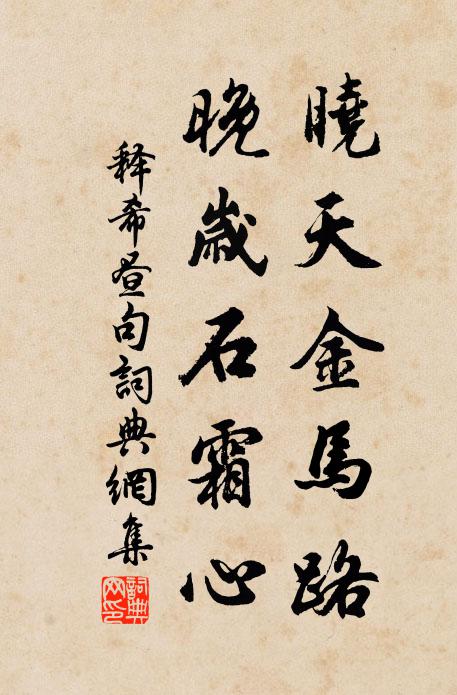 曉天金馬路
晚歲石霜心
釋希晝句詞典網集
詞典網印